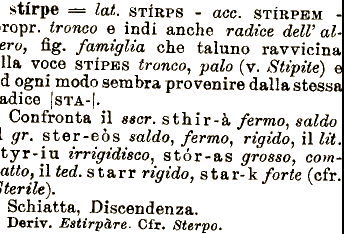 stírpe = lat. STÍRPS - acc. STÍRPEM -
propr. tronco e indi anche radice dell' al-
ero, fig. famiglia che taluno ravvicina
lla voce STÍPES tronco, palo (v. Stipite) e
d ogni modo sembra provenire dalla stessa
adice |STA-|.
Confronta il sscr. sthir-à fermo, saldo
l gr. ster-eòs saldo, fermo, rigido, il lit.
tyr-iu irrigidisco, stór-as grosso, com-
atto, il ted. starr rigido, star-k forte (cfr.
Sterile).
Schiatta, Discendenza.
Deriv. Estirpàre. Cfr. Sterpo.